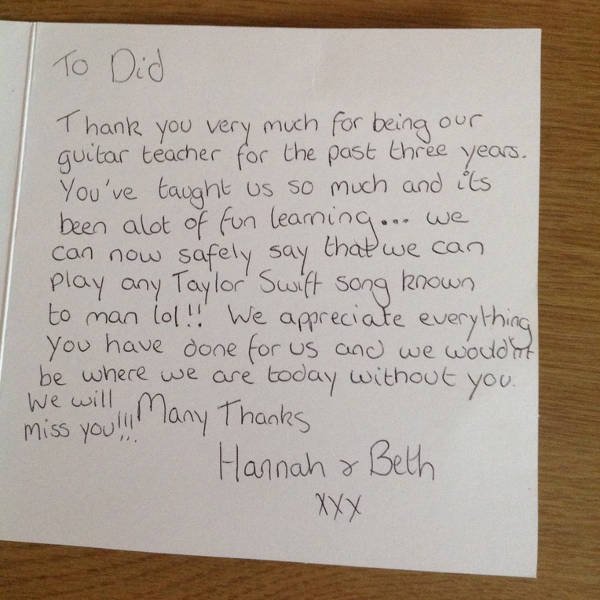 To Did
Thank you very much for being our
guitar teacher for the past three years.
You've taught us so much and it's
been alot of fun learning... we
can now safely say that we can
play any Taylor Swift song known
to man lol!! We appreciate everything
you have done for us and we wouldn't
be where we are today without you.
We will
miss you!!!
Many Thanks
Hannah & Beth
xxx